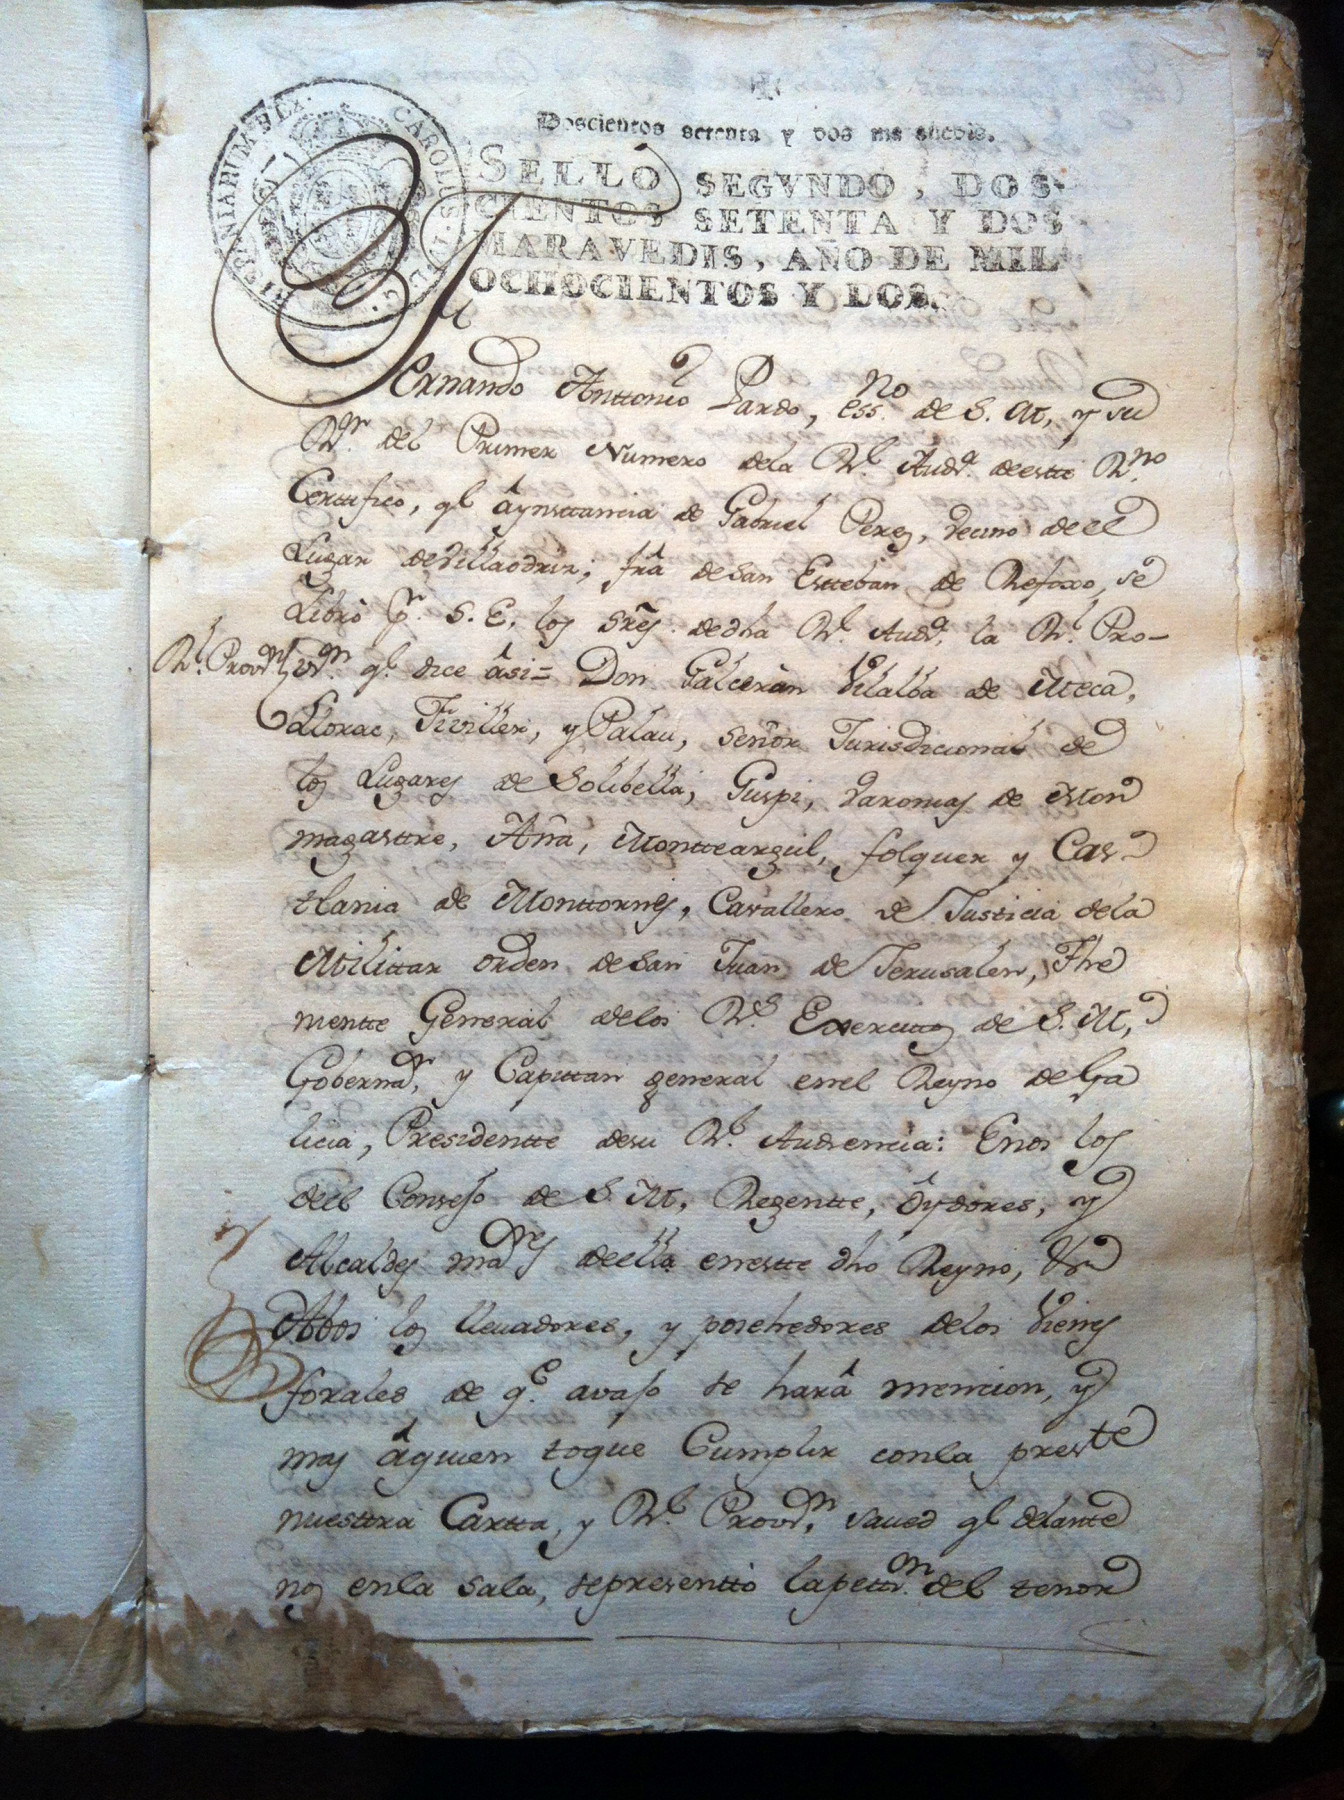 Doscientos setenta y dos mrs
SELLO SEGVNDO, DOS-
CIENTOS SETENTA Y DOS
MARAVEDIS, AÑO DE MIL
OCHOCIENTOS Y DOS.
HISPANIARUM REX. CAROLUS IV. D. G.
Fernando Anttonio Pardo, essno de S. M, y su
Rr. del Primer Numero dela Rl. Audª. deestte Rno.
Certtifico, ql âynsttancia de Gabriel Perez, vecino de el
Lugar deVillaodriz, frâ de San Estteban de Refoxo, se
Libró Pr. S. E. los Sres. dedha Rl. Audª. la Rl. Pro-
Rl. Provon.
von. ql. dice âsi= Don Galcerán Vilalba de Meca,
Llorac, Fiviller, y Palau, señor Jurisdicional de
los Lugares de Solibella, Guspi, Varonias de Mon
magasttre, Aña, Montteargul, folquer y Cas-
tlania de Monttornés, Cavallero de Justicia dela
Milittar orden de San Juan de Jerusalen, The
nientte General delos Rs. Exercittos de S. M,
Gobernadr. y Capittan general enel Reyno de Ga
licia, Presidentte desu Rl. Audiencia: Enos los
deel Consejo de S. M, Regentte, Ôydores, y
Alcaldes mares deella enestte dho Reyno, &ª
Abos los llevadores, y posehedores delos Vienes
forales de qe. avajo se hará mencion, y
mas âquien toque Cumplir conla prestte
nuesttra Cartta, y Rl. Provon, saved ql delante
nos enla Sala, sepresenttó lapetton. del tenor